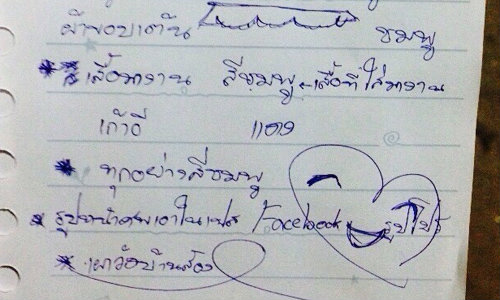 ผ้าขอบเต้น ชมพู
** เสื้อมางาน สีชมพู - เสื้อที่ใส่มางาน
เก้าอี้ แดง
* ทุกอย่างสีชมพู
* รูปหน้าศพเอาในเฟส Facebook รูปโปร์
* เผาวัดบ้านส้อง